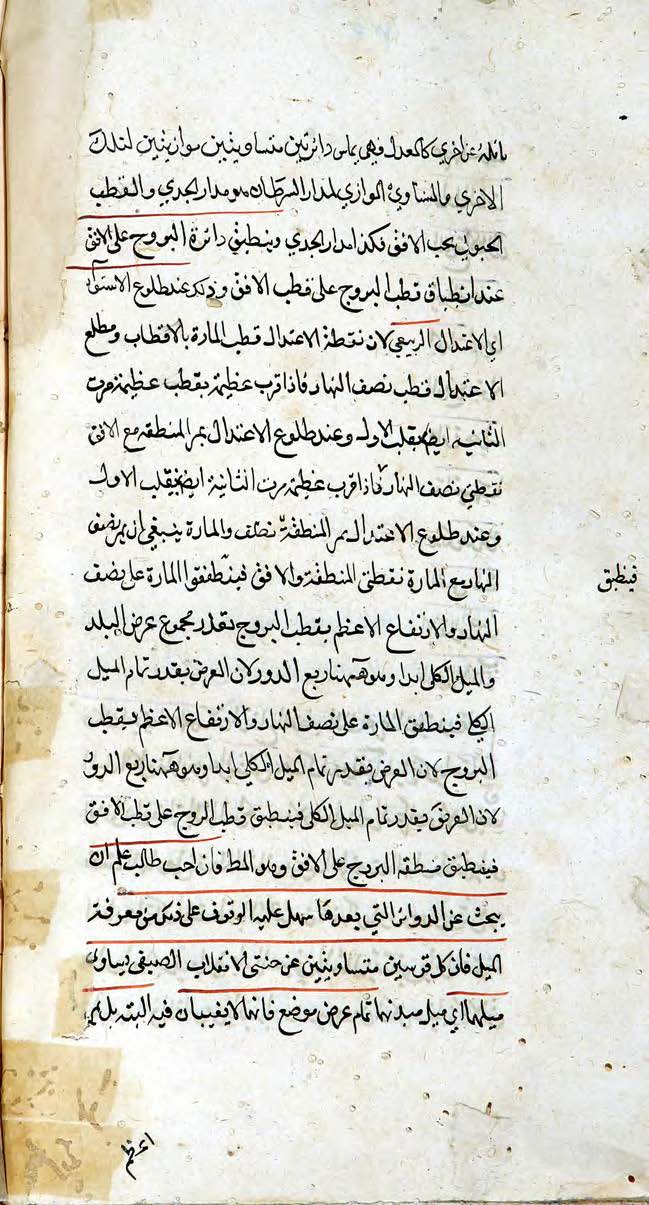 مائلة عن اخري كالمعدل فهي يماس دائرتين متساويتين موازيتين لتلك
الاخري والمساوي الموازي لمدار السرطان هو مدار الجدي والقطب
الجنوبي يجب الافق فكذا مدار الجدي وينطبق دائرة البروج على الافق
عند انطباق قطب البروج على قطب الافق وذلك عند طلوع الاستواء
اي الاعتدال الربيعي لان نقطة الاعتدال قطب المارة بالاقطاب ومطلع
الاعتدال قطب نصف النهار فاذا قرب عظيمة بقطب عظيمة مرت
الثانية ايضا بقلب الاول وعند طلوع الاعتدال يمر المنطقة مع الافق
نقطتي نصف النهار فاذا قرب عظيمة مرت الثانية ايضا بقلب الاول
وعند طلوع الاعتدال يمر المنطقة والمارة ينبغي ان يمر نصف
النهار مع المارة نقطتي المنطقة والافق فينطبق المارة على نصف
النهار والارتفاع الاعظم بقطب البروج بقدر مجموع عرض البلد
والميل الكلي ابدا وهو ههنا ربع الدور لان العرض بقدر تمام الميل
الكلي فينطبق المارة على نصف النهار والارتفاع الاعظم بقطب
البروج لان العرض بقدر تمام الميل الكلي ابدا وهو ههنا ربع الدور
لان العرض بقدر تمام الميل الكلي فينطبق قطب البروج على قطب الافق
فينطبق منطقة البروج على الافق وهو المط فان احب طالب علم ان
يبحث عن الدوائر التي بعدها سهل عليه الوقوف على ذلك من معرفة
الميل فان كل قوسين متساويتين عن جنبتي الانقلاب الصيفي يساوي
ميلهما اي ميل مبدئهما تمام عرض موضع فانهما لا يغيبان فيه البتة بل يمر
فينطبق
اعظم